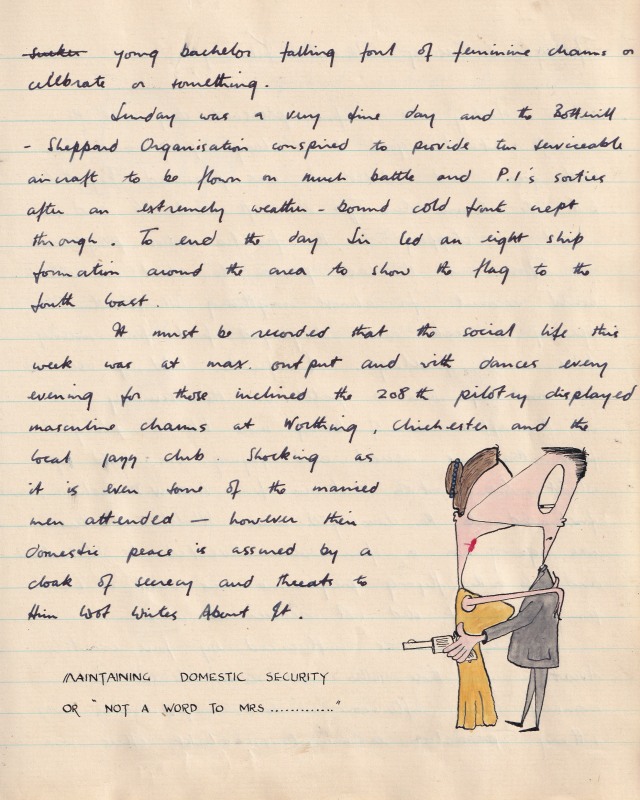 sucker young bachelor falling foul of feminine charms or
celebrate or something.
Sunday was a very fine day and the Botterill
- Sheppard Organisation conspired to provide ten serviceable
aircraft to be flown on much battle and P.I's sorties
after an extremely weather-bound cold front crept
through. To end the day Sir led an eight ship
formation around the area to show the flag to the
South Coast.
It must be recorded that the social life this
week was at max. output and with dances every
evening for those inclined the 208th pilotry displayed
masculine charms at Worthing, Chichester and the
local jazz club. Shocking as
it is even some of the married
men attended — however their
domestic peace is assured by a
cloak of secrecy and threats to
Him Wot Writes About It.
MAINTAINING DOMESTIC SECURITY
OR "NOT A WORD TO MRS ............."